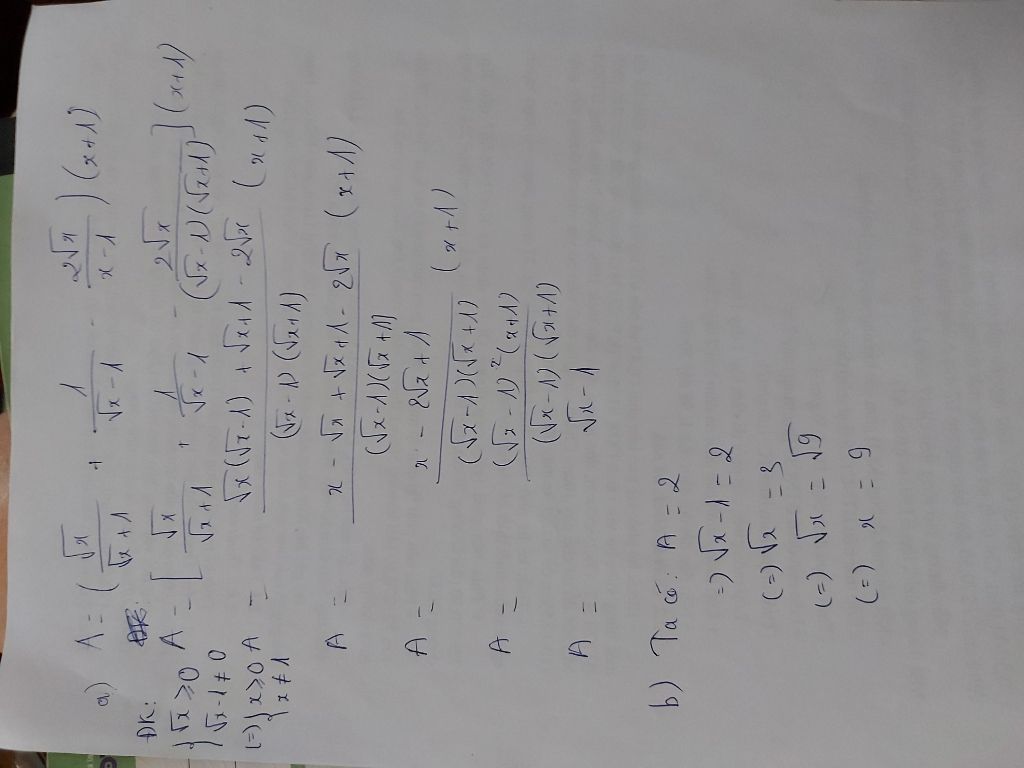 a) A = ( √x/(√x+1) + 1/(√x-1) - 2√x/(x-1) ) (x+1)
ĐK: A = [ √x/(√x+1) + 1/(√x-1) - 2√x/((√x-1)(√x+1)) ] (x+1)
{ √x ≥ 0
√x-1 ≠ 0
A = (√x(√x-1) + √x+1 - 2√x)/((√x-1)(√x+1)) (x+1)
(=) { x ≥ 0
x ≠ 1
A = (x - √x + √x+1 - 2√x)/((√x-1)(√x+1)) (x+1)
A = (x - 2√x + 1)/((√x-1)(√x+1)) (x+1)
A = ((√x-1)²(x+1))/((√x-1)(√x+1))
A = √x-1
b) Ta có: A = 2
=) √x-1 = 2
(=) √x = 3
(=) √x = √9
(=) x = 9